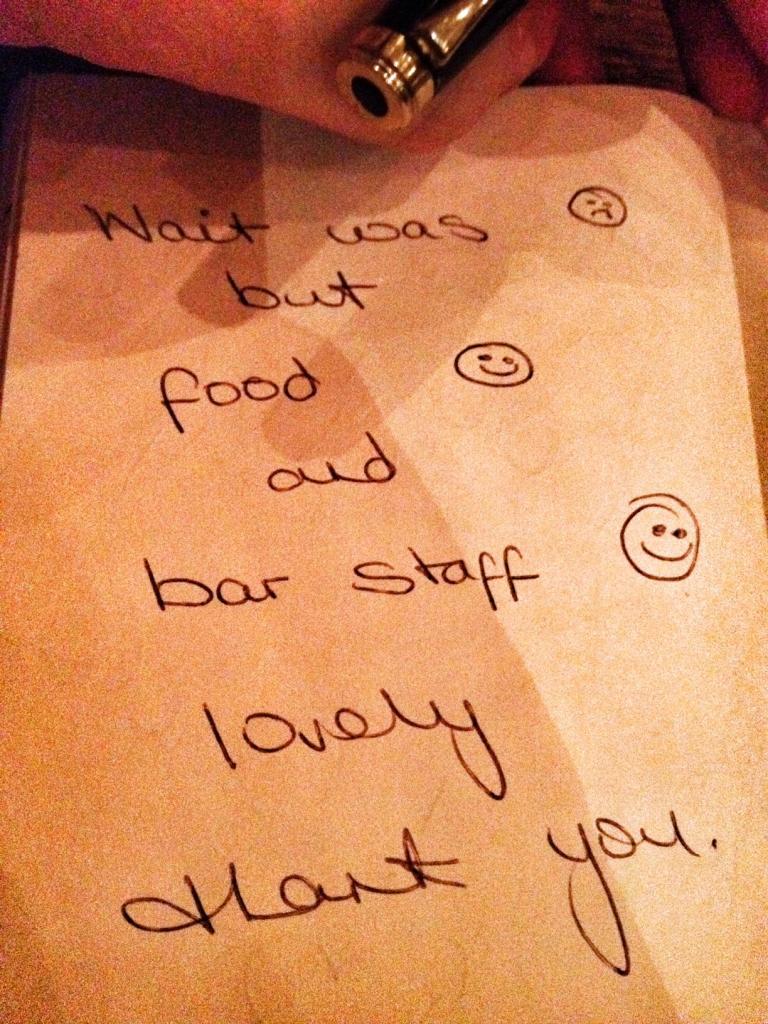 Wait was ☹
but
food ☺
and
bar staff ☺
lovely
thank you.